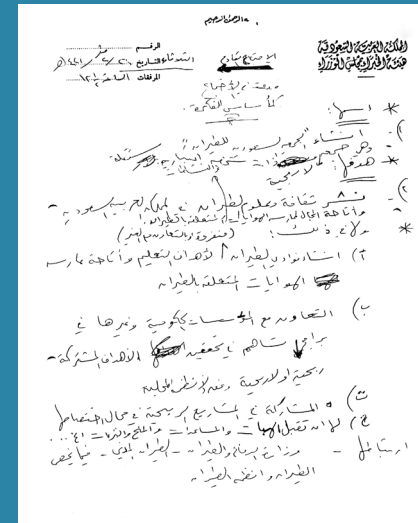 بسم الله الرحمن الرحيم
المملكة العربية السعودية
هيئة الخبراء بمجلس الوزراء
الرقم
التاريخ ١٤٢١هـ
المرفقات الساعة
الاجتماع
مسودة في الاجتماع
* اسمها:
١- إنشاء "الجمعية السعودية للطيران"
وهي جمعية ذات شخصية اعتبارية مستقلة
* هدفها:
٢- نشر ثقافة وعلوم الطيران في المملكة العربية السعودية
وإتاحة المجال لممارسة الهوايات المتعلقة بالطيران
* ولها في ذلك: (منفردة أو بالتعاون مع الغير)
أ) إنشاء نوادي الطيران لأهداف التعليم وإتاحة ممارسة
الهوايات المتعلقة بالطيران
ب) التعاون مع المؤسسات الحكومية وغيرها في
برامج تساهم في تحقيق الأهداف المشتركة
ربحية أو لا ربحية
ت) المشاركة في المشاريع الربحية في مجال اختصاصها
ج) لها أن تقبل الهبات والمساعدات والمنح والتبرعات
ارتباطها - وزارة الدفاع والطيران - الطيران المدني - فيما يخص
الطيران وأنظمة الطيران